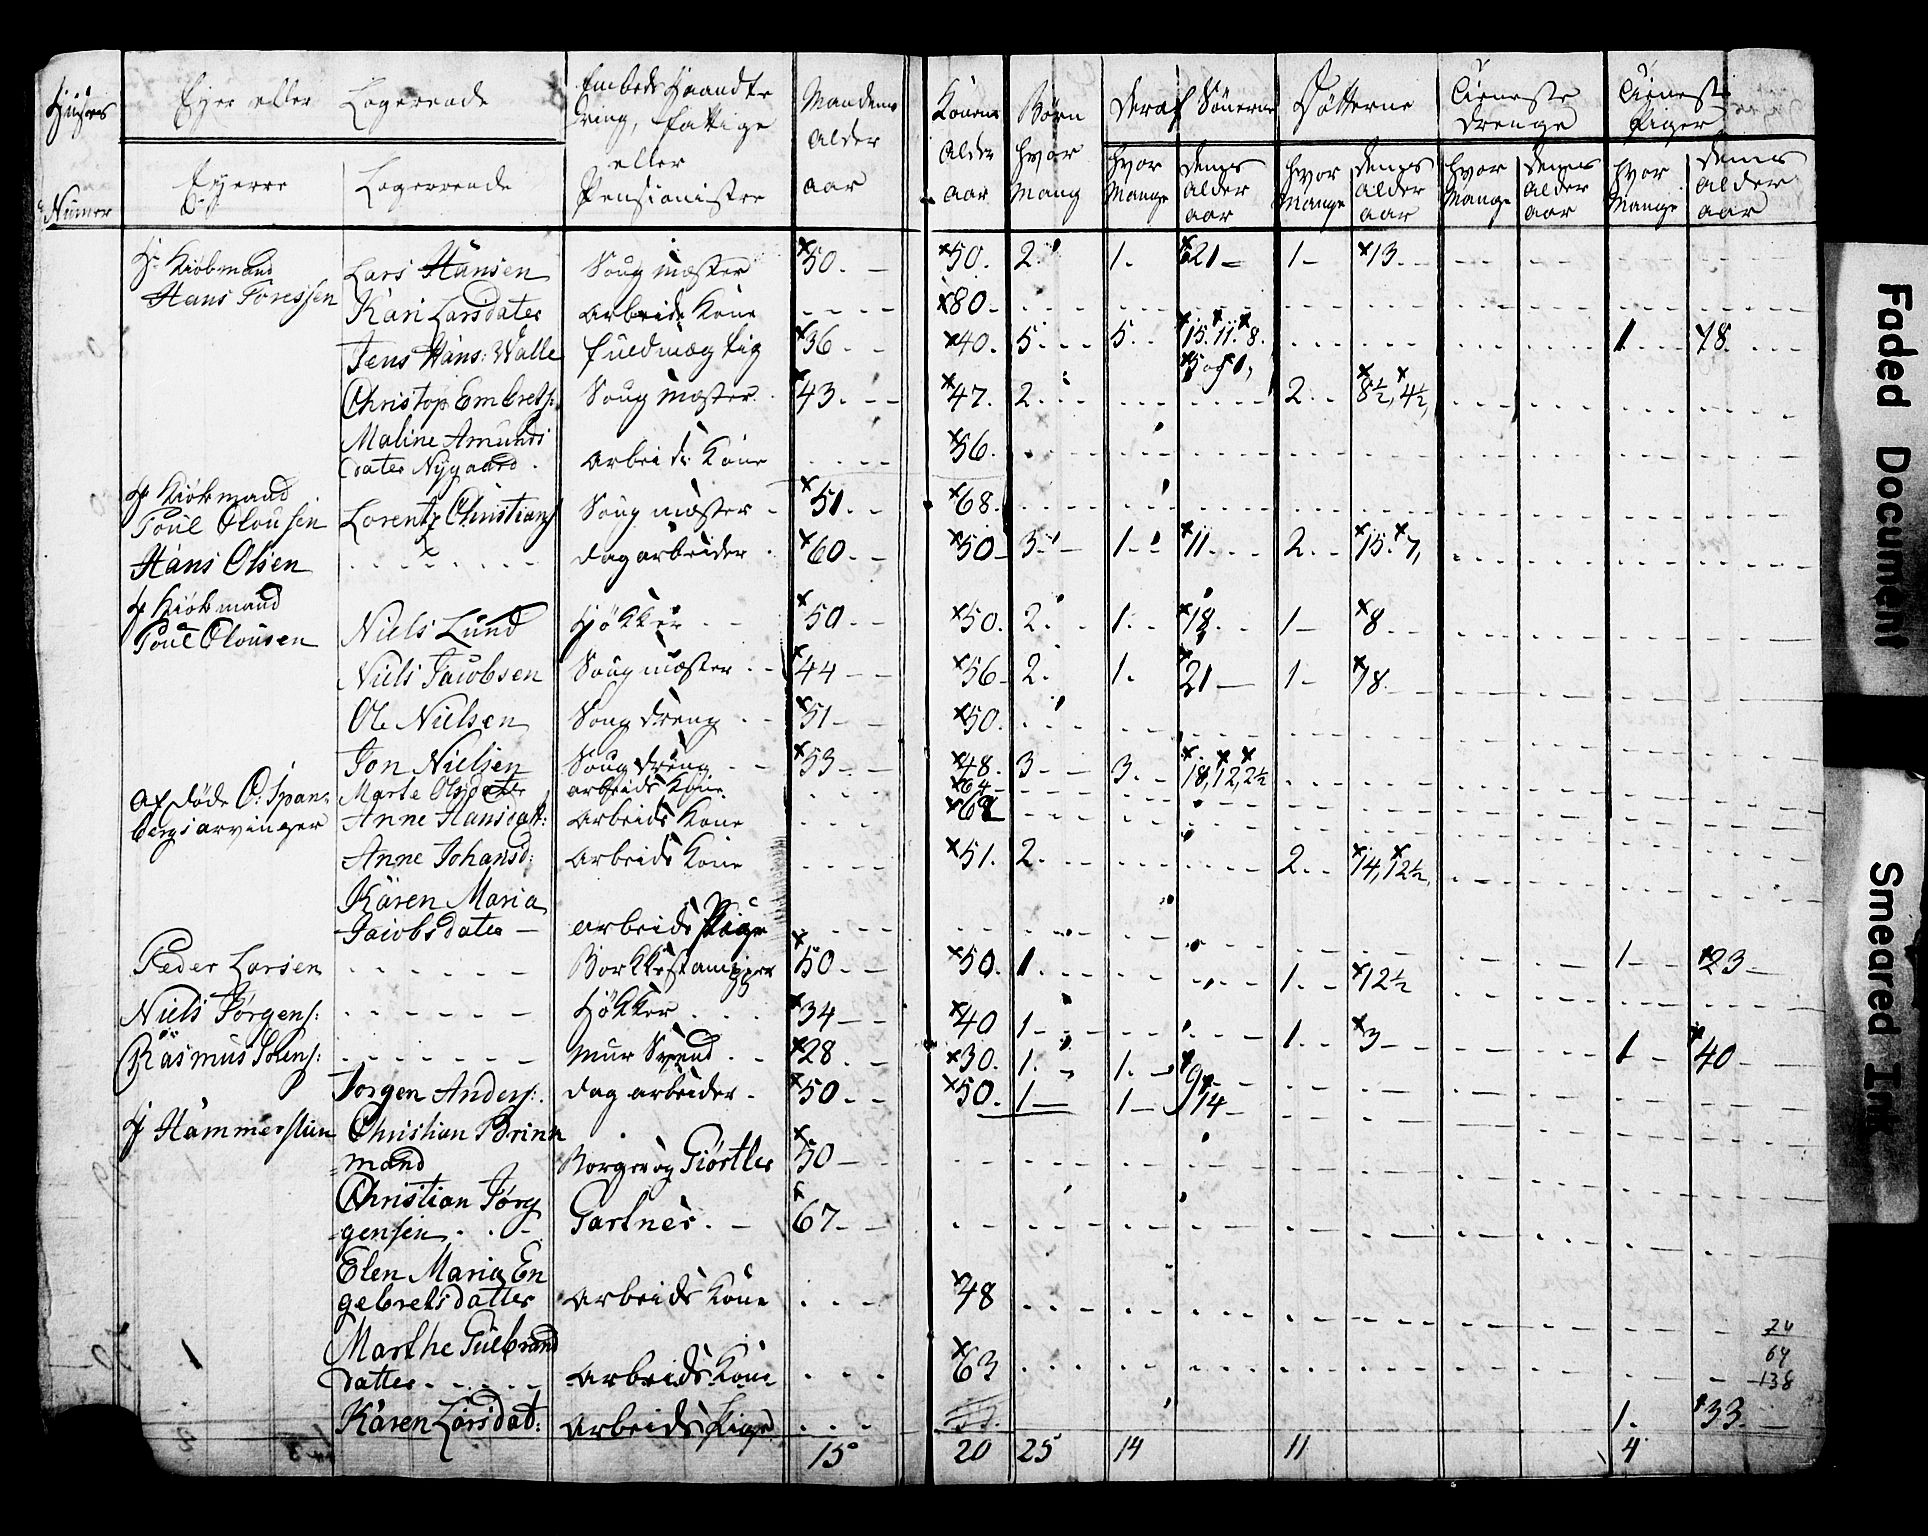 Huusets Eyer eller Logerende Embeds Haandte Mandens Konens Børn Deraf Sönerne Døtterne Tieneste Tieneste
ring, fattige Alder Alder hvor Drenge Piger
Numer Eyerne Logerende eller Pensionister aar aar Mang hvor Mange deres Alder aar hvor Mange deres Alder aar hvor Mange deres Alder aar hvor Mange deres Alder aar
Hr Kiöbmand
Hans Foressen Lars Hansen Saugmæster 50. 50. 2. 1. 21 1 13
Kari Larsdater Arbeids Kone 80
Jens Hans: Walle fuldmægtig 36 40. 5 5 15. 11. 8. 1 48
5 og 1,
Christop Embretz: Saug Mæster 43. 47. 2 2 8½, 4½,
Maline Amunds
dater Nygaard. Arbeids Kone 56.
Hr Kiöbmand
Poul Olousen Lorentz Christians Saug mæster 51 68.
Hans Olsen Dagarbeider 60 50 3 1 11 2 15. 7,
Hr Kiöbmand
Poul Olousen Niels Lund Høkker 50 50. 2. 1. 18 1 8
Niels Jacobsen Saugmæster 44 56 2. 1. 21 1 18
Ole Nielsen Saug dreng 51 50.
Jon Nielsen Saug dreng 53 48. 3 3 18, 12, 2½
Af döde O: Span= Marte Olsdatter arbeids Kone 64
bergs arvinger Anne Hansdatt: Arbeids Kone 62
Anne Johansd: Arbeids Kone 51. 2. 2 14, 12½,
Karen Maria
Jacobsdater arbeids Pige 1 23
Peder Larsen Borkkestamper 50 50. 1. 1. 12½
Niels Jörgens: Høkker 34 40 1 1 3
Rasmus Sörens: Mur Svend 28 30. 1. 1. 9 1 40
Jorgen Anders: Dag arbeider 50 50. 1 1 14
Hr Hammerstun Christian Brink
mand Borger og Giörtler 50
Christian Jörg
gensen Gartner 67
Elen Maria En
gebretsdatter Arbeids Kone 48
Marthe Gulbrand
datter Arbeids Kone 63
Karen Larsdat: Arbeids Pige 1. 33
15 20 25 14 11 4
74
64
138
Faded Document
Smeared Ink